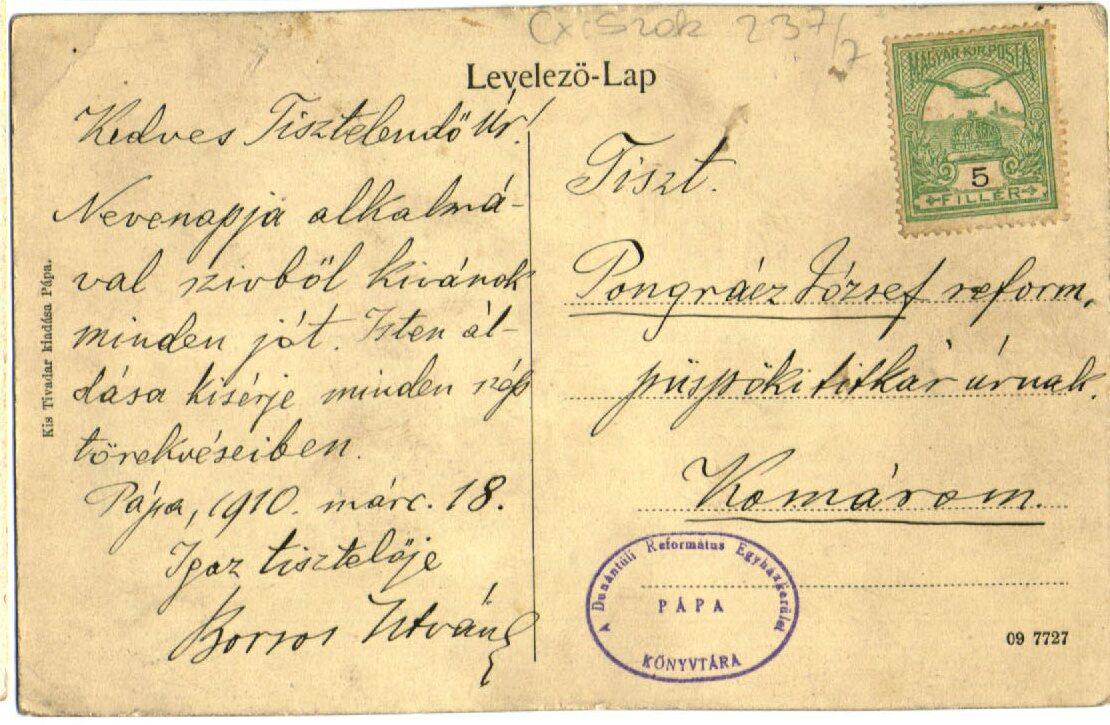 Cx. Szok 237/7
Levelező-Lap
MAGYAR KIR. POSTA
5
FILLÉR
Kedves Tisztelendő Úr!
Nevenapja alkalmá-
val szivből kivánok
minden jót. Isten ál-
dása kisérje minden szép
törekvéseiben.
Pápa, 1910. márc. 18.
Igaz tisztelője
Borsos István
Kis Tivadar kiadása Pápa.
Tiszt.
Pongrácz József reform.
püspöki titkár úrnak.
Komárom.
A Dunántúli Református Egyházkerület
PÁPA
KÖNYVTÁRA
09 7727